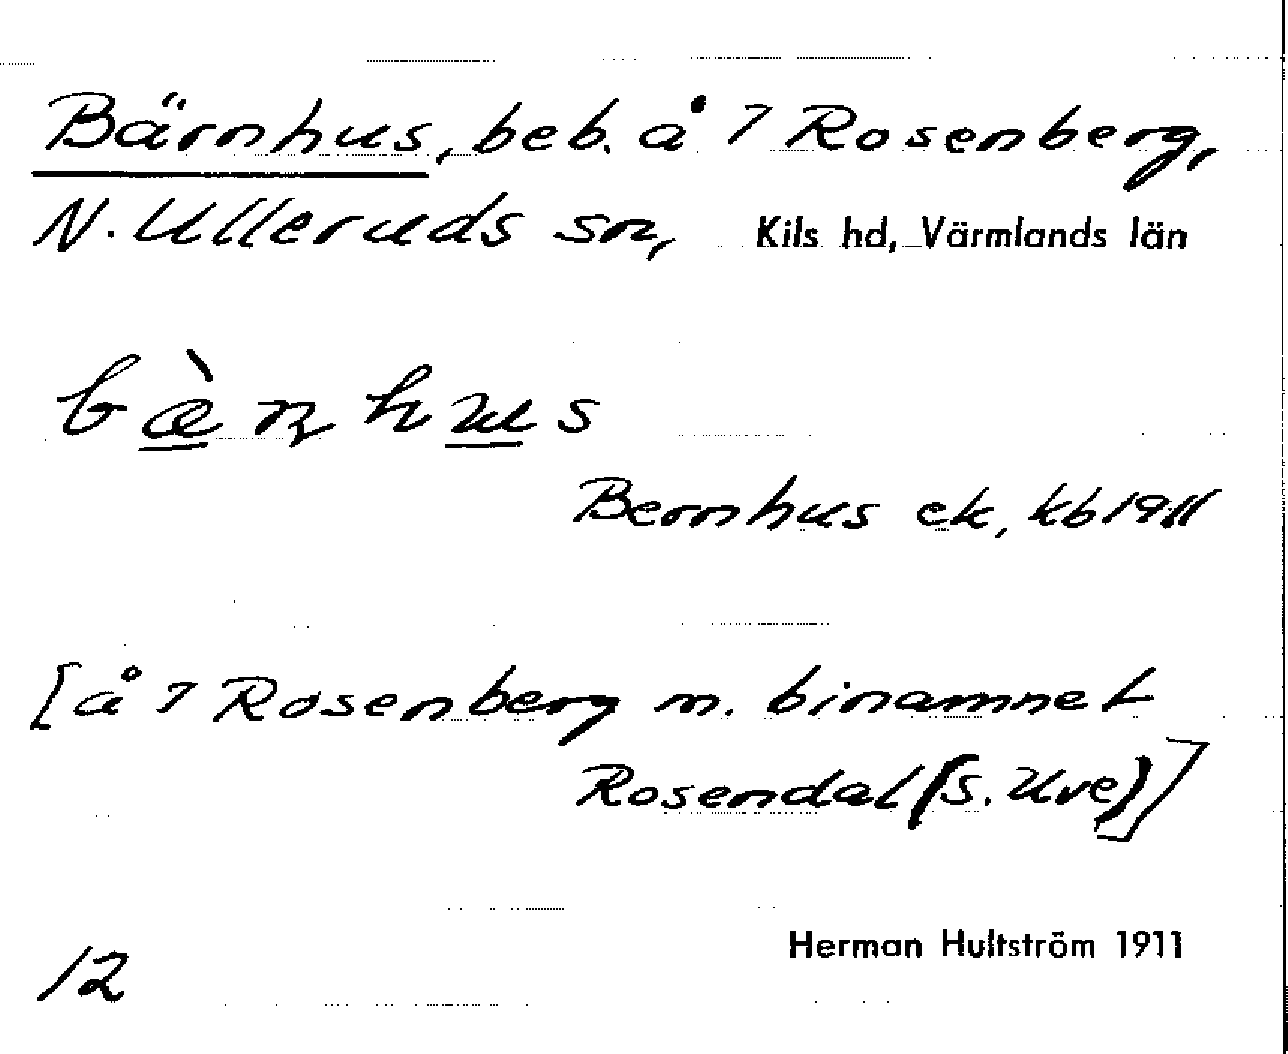 Bärnhus, beb. å 7 Rosenberg,
N. Ulleruds sn, Kils hd, Värmlands län
bæ̀ɳhus
Bernhus ek, kb 1911
[å 7 Rosenberg m. binamnet
Rosendal (S. Uve)]
Herman Hultström 1911
12